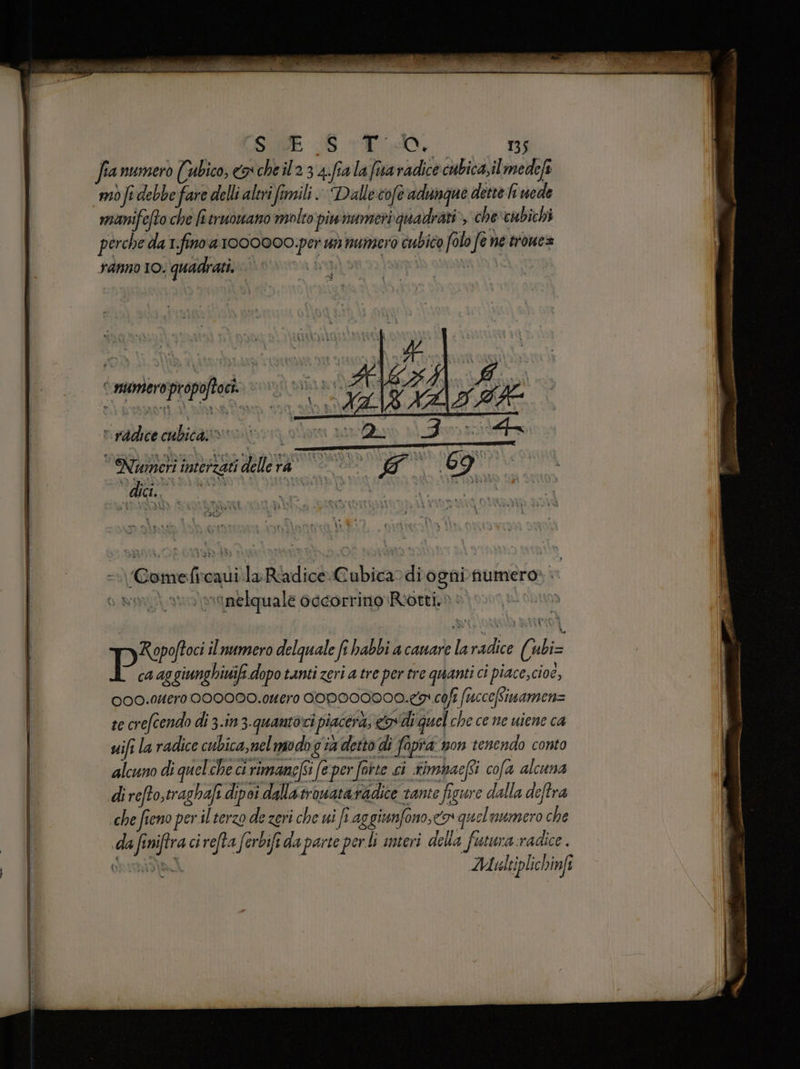 S E S T O. 135
ſia numero Cubico, & che il 2 3 4. ſia la ſua radice cubica, il medeſi
mo ſi debbe fare delli altri ſimili. Dalle coſe adunque dette ſi uede
manifeſto che ſi truouano molto piu numeri quadrati, che cubichi
perche da 1. fino a 1000000. per un numero cubico ſolo ſe ne troue=
ranno 10. quadrati.
numero propoſtoci.
radice cubica. 2 3 4
Numeri interzati delle ra 6 69
dici.
Come ſi caui la Radice Cubica di ogni numero
nelquale occorrino Rotti.
PRopoſtoci il numero delquale ſi habbi a cauare la radice Cubi=
ca aggiunghiuiſi dopo tanti zeri a tre per tre quanti ci piace, cioè,
000. ouero 000000. ouero 000000000. & coſi ſucceſsiuamen=
te creſcendo di 3. in 3. quanto ci piacerà, & di quel che ce ne uiene ca
uiſi la radice cubica, nel modo già detto di ſopra non tenendo conto
alcuno di quel che ci rimaneſsi ſe per ſorte ci rimnaeſsi coſa alcuna
di reſto, traghaſi dipoi dalla trouata radice tante figure dalla deſtra
che ſieno per il terzo de zeri che ui ſi aggiunſono, & quel numero che
da ſiniſtra ci reſta ſerbiſi da parte per li interi della futura radice.
Multiplichinſi